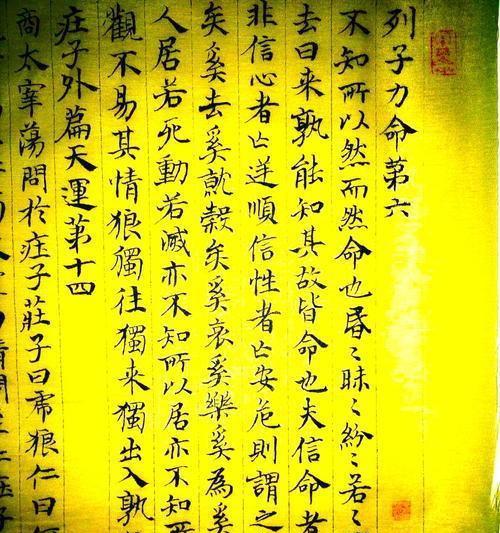 列子力命第六
不知所以然而然命也昬〻昧〻紛〻若〻
去曰来孰能知其故皆命也夫信命者
非信心者亾逆順信性者亾安危則謂之
矣奚去奚就穀矣奚哀奚樂奚為奚
人居若死動若滅亦不知所以居亦不知
觀不易其情狼獨往獨来獨出入孰
庄子外篇天運第十四
商太宰蕩問於庄子莊子曰虎狼仁曰